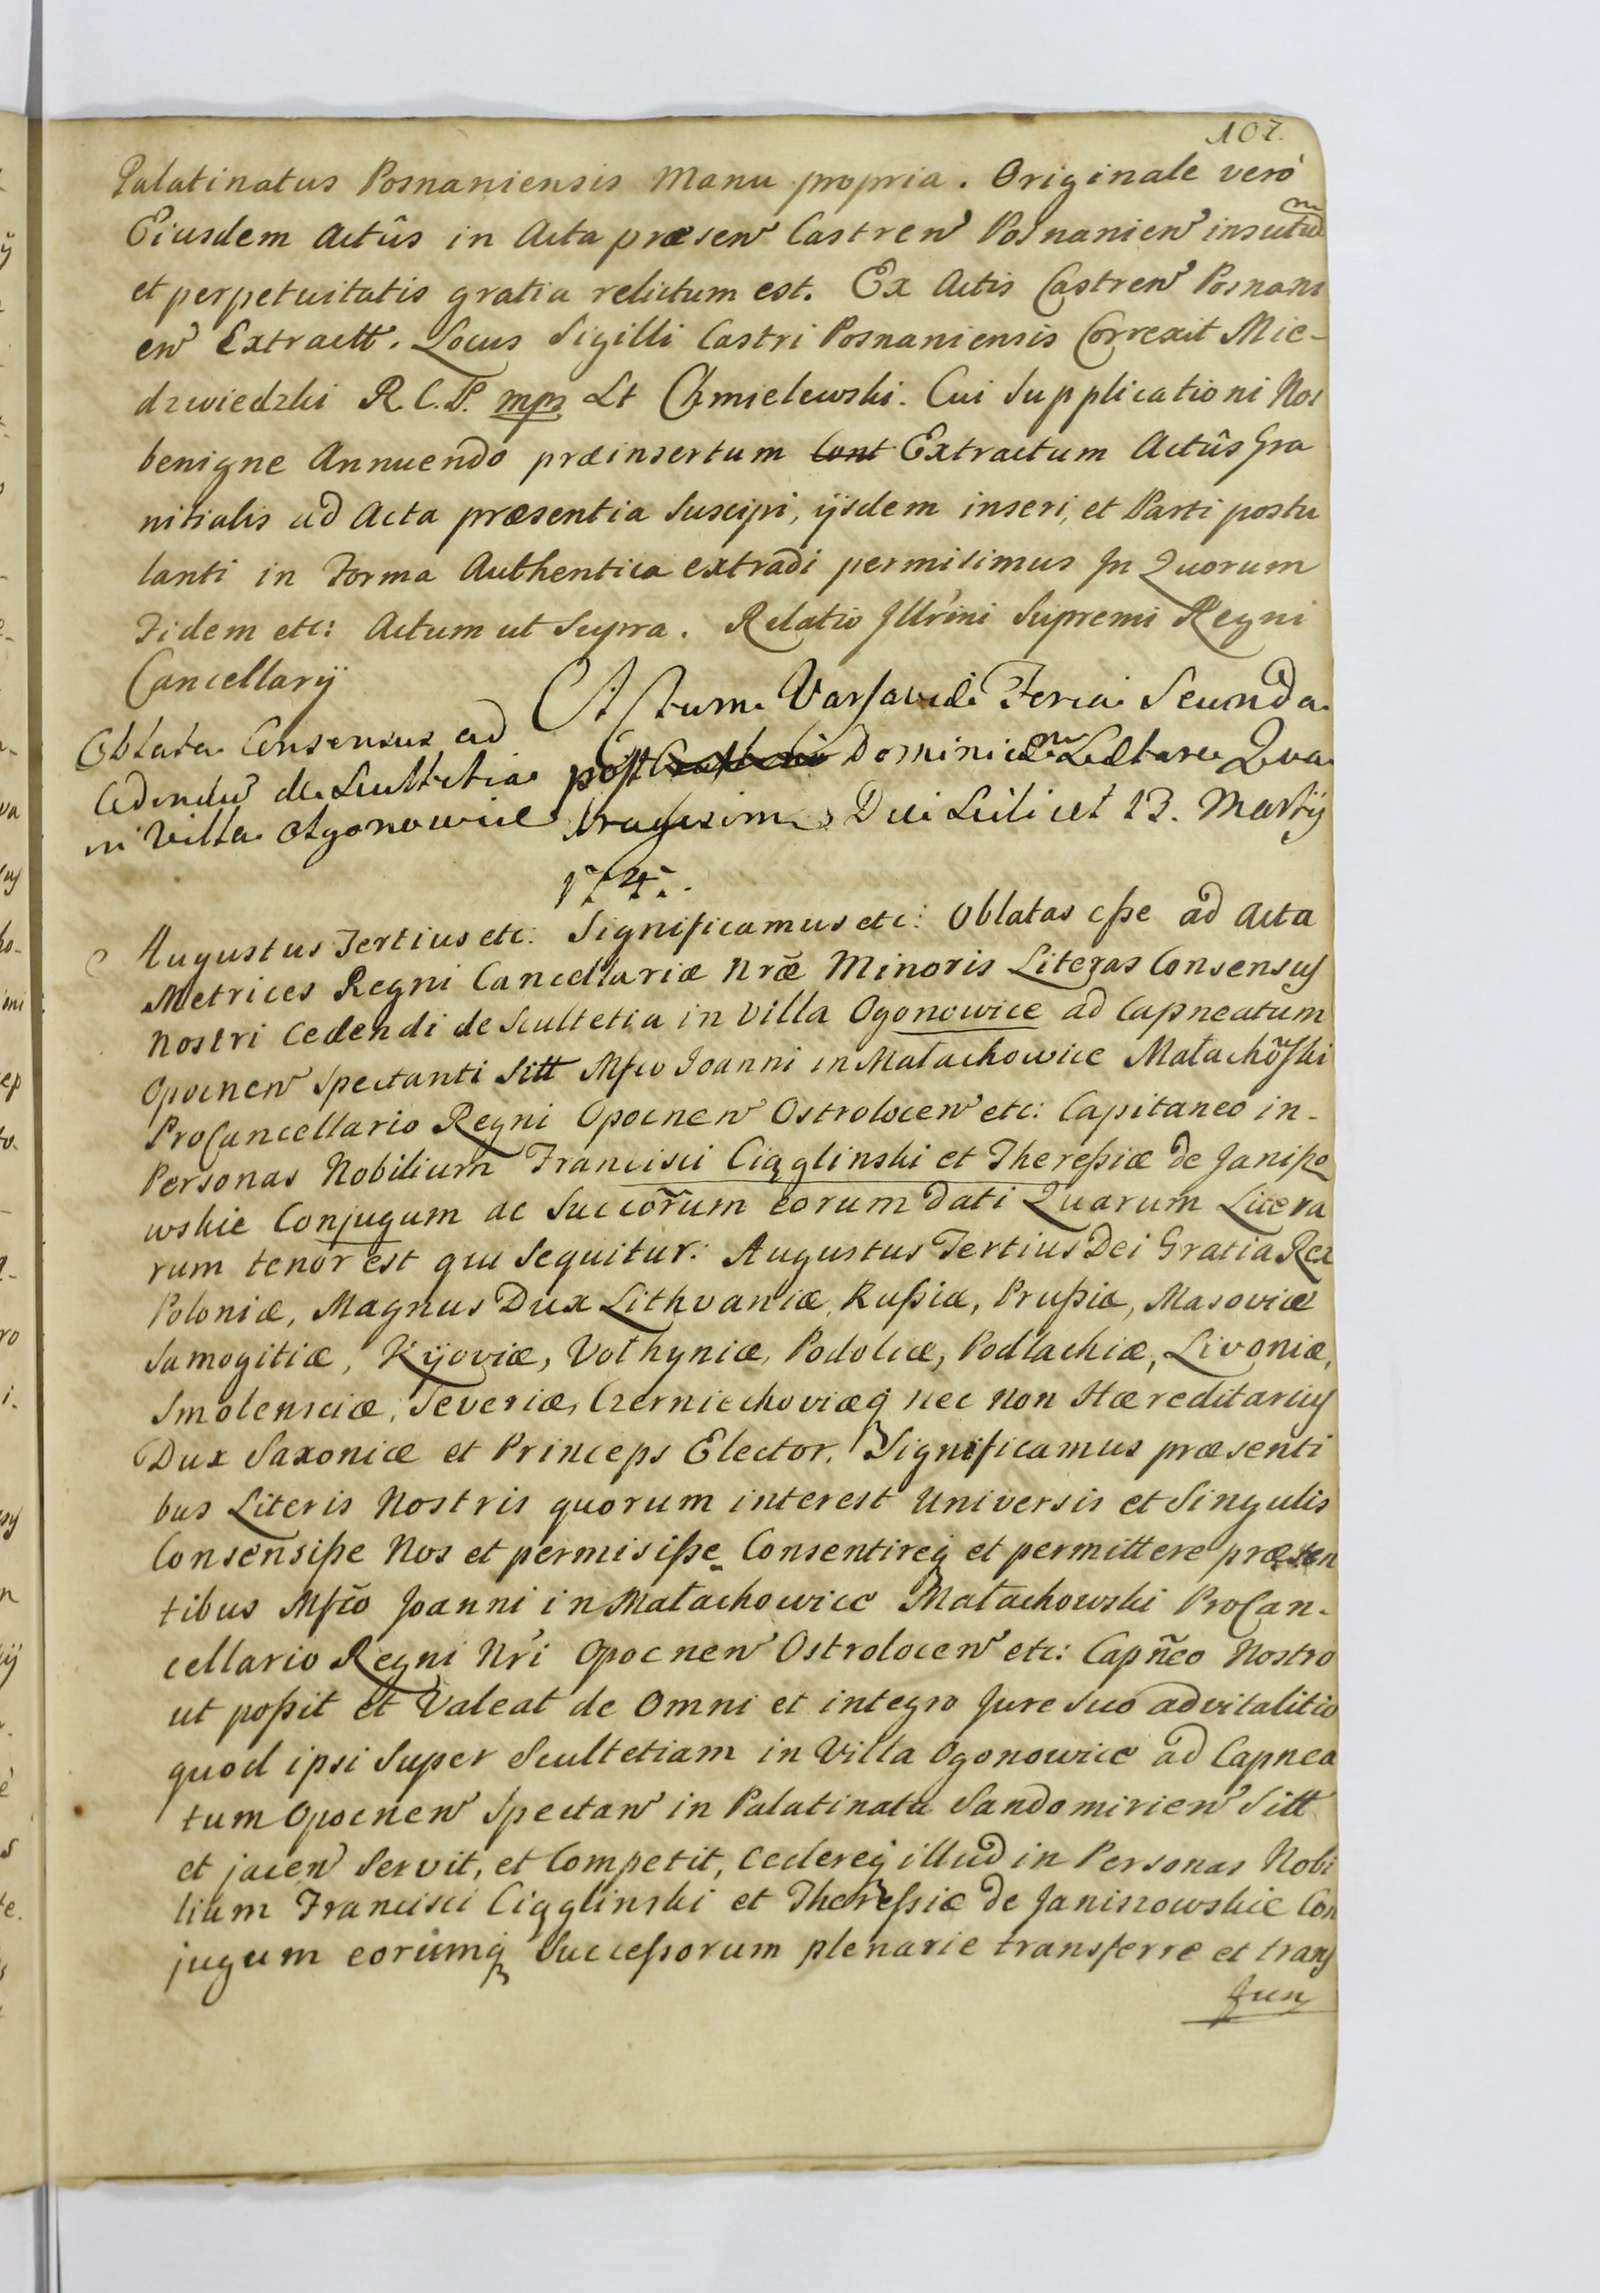 107.
Palatinatus Posnaniensis Manu propria. Originale verò
Eiusdem Actûs in Acta præsen Castren Posnanien insutum
et perpetuitatis gratia relictum est. Ex Actis Castren Posnani
en Extractt. Locus Sigilli Castri Posnaniensis Correxit Mie-
dzwiedzki R. C. P. mpp Lt Chmielewski. Cui Supplicationi Nos
benigne Annuendo præinsertum Cont Extractum Actûs Gra
nitialis ad Acta præsentia Suscipi, ijsdem inseri, et Parti postu
lanti in Forma Authentica extradi permisimus In Quorum
Fidem etc: Actum ut Supra. Relatio Illr̃mi Supremi Regni
Cancellarij
Oblata Consensus ad
cedendũ de Scultetia
in Villa Ogonowice
Actum Varsaviæ Feria Secunda
post Dominicam Lætare Qua
dragesimæ Die Scilicet 13. Martij
174.
Augustus Tertius etc: Significamus etc: Oblatas eſse ad Acta
Metrices Regni Cancellariæ Nrãe Minoris Literas Consensus
Nostri Cedendi de Scultetia in Villa Ogonowice ad Capneatum
Opocnen Spectanti Sitt Mfco Joanni in Małachowice Małachõski
ProCancellario Regni Opocnen Ostrolocen etc: Capitaneo in-
Personas Nobilium Francisci Ciągliński et Thereſsiæ de Janiſzo
wskie Conjugum ac Succõrum eorum dati Quarum Litera
rum tenor est qui Sequitur: Augustus Tertius Dei Gratia Rex
Poloniæ, Magnus Dux Lithvaniæ, Ruſsiæ, Pruſsiæ, Masoviæ
Samogitiæ, Kijoviæ, Volhyniæ, Podoliæ, Podlachiæ, Livoniæ,
Smolensciæ, Severiæ, Czerniechoviæq nec non Hæreditarius
Dux Saxoniæ et Princeps Elector. Significamus præsenti
bus Literis Nostris quorum interest Universis et Singulis
Consensiſse Nos et permisiſse Consentireq et permittere præsen
tibus Mfcõ Joanni in Małachowice Małachowski ProCan-
cellario Regni Nr̃i Opocnen Ostrolocen etc: Capñeo Nostro
ut poſsit et Valeat de Omni et integro Jure Suo advitalitio
quod ipsi Super Scultetiam in Villa Ogonowice ad Capnea
tum Opocnen Spectan in Palatinatu Sandomirien Sitt
et jacen Servit, et Competit, Cedereq illud in Personas Nobi
lium Francisci Ciąglinski et Thereſsiæ de Janiszowskie Con
jugum eorumq Succeſsorum plenarie transferre et trans
fun